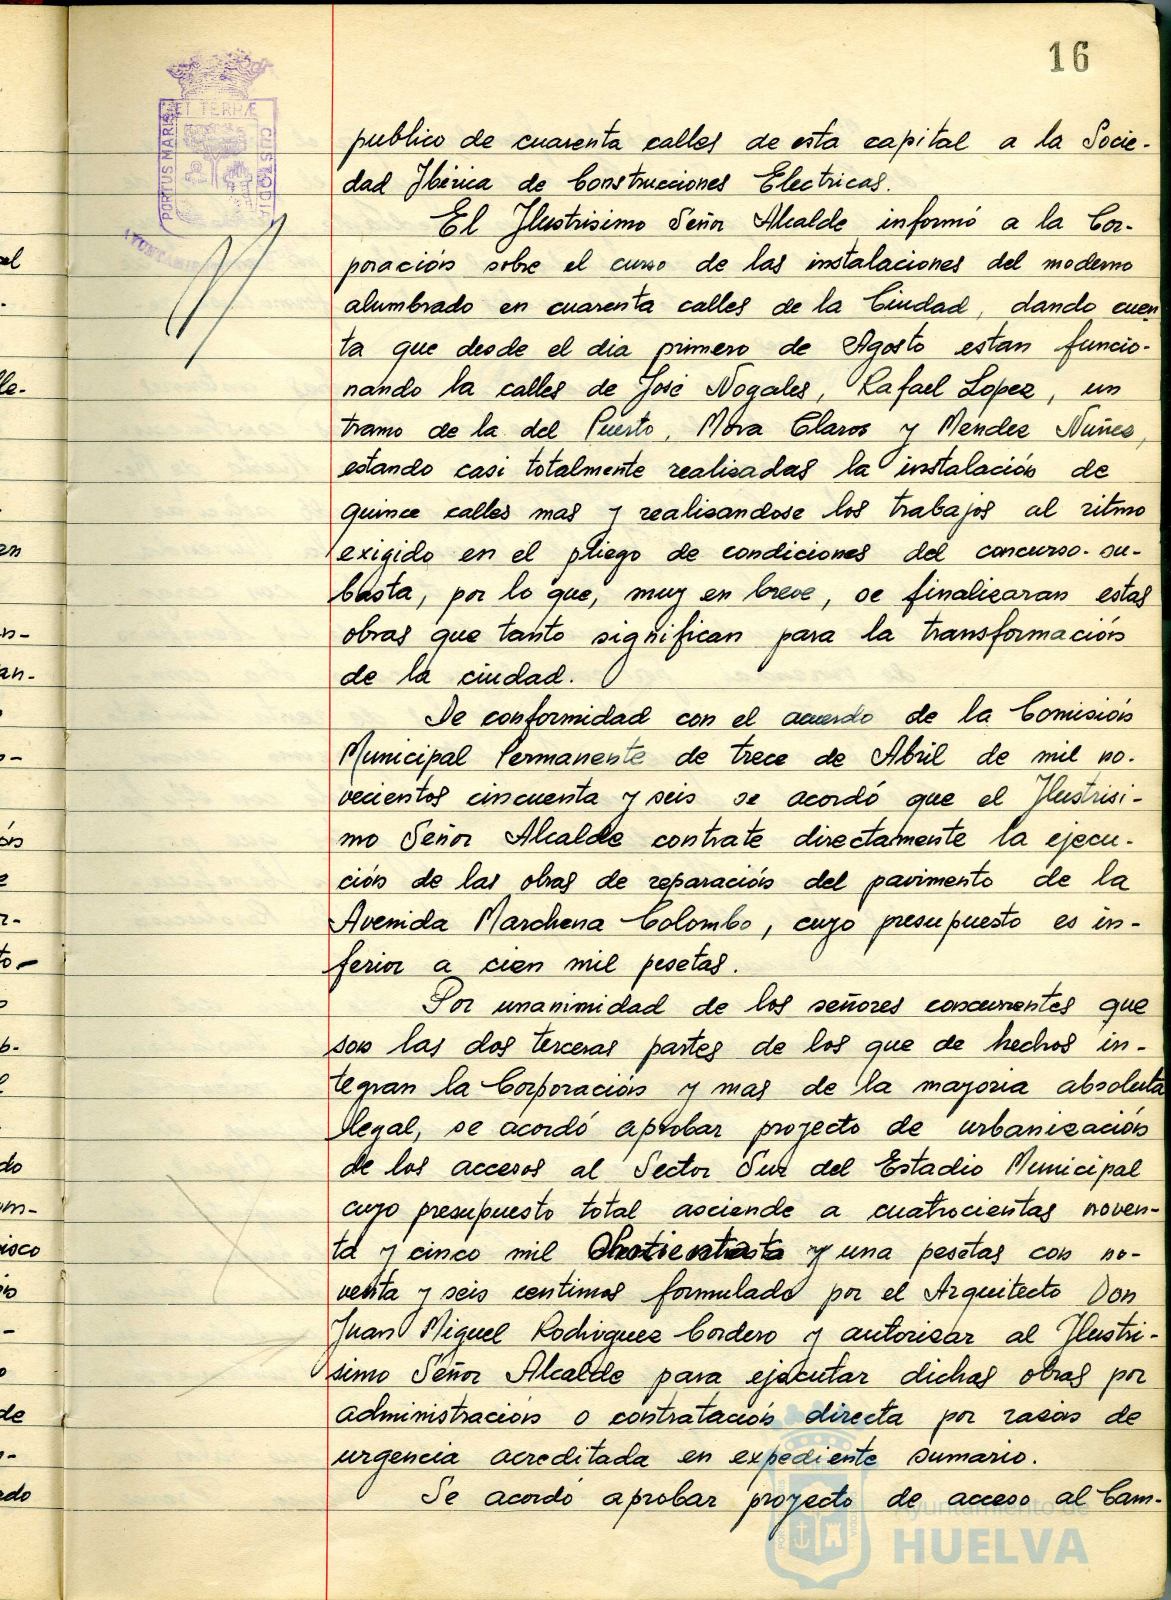 16
ET TERRÆ
PORTUS MARIS
CUSTODIA
publico de cuarenta calles de esta capital a la Socie-
dad Ibérica de Construcciones Electricas.
El Ilustrisimo Señor Alcalde informó a la Cor-
poración sobre el curso de las instalaciones del moderno
alumbrado en cuarenta calles de la Ciudad, dando cuen
ta que desde el dia primero de Agosto estan funcio-
nando la calles de José Nogales, Rafael Lopez, un
tramo de la del Puerto, Mora Claros y Mendez Nuñez,
estando casi totalmente realizadas la instalación de
quince calles mas y realizandose los trabajos al ritmo
exigido en el pliego de condiciones del concurso-su-
basta, por lo que, muy en breve, se finalizaran estas
obras que tanto significan para la transformación
de la ciudad.
De conformidad con el acuerdo de la Comisión
Municipal Permanente de trece de Abril de mil no-
vecientos cincuenta y seis se acordó que el Ilustrisi-
mo Señor Alcalde contrate directamente la ejecu-
ción de las obras de reparación del pavimento de la
Avenida Marchena Colombo, cuyo presupuesto es in-
ferior a cien mil pesetas.
Por unanimidad de los señores concurrentes que
son las dos terceras partes de los que de hechos in-
tegran la Corporación y mas de la mayoria absoluta
legal, se acordó aprobar proyecto de urbanización
de los accesos al Sector Sur del Estadio Municipal
cuyo presupuesto total asciende a cuatrocientas noven-
ta y cinco mil y una pesetas con no-
venta y seis centimos formulado por el Arquitecto Don
Juan Miguel Rodriguez Cordero y autorizar al Ilustri-
simo Señor Alcalde para ejecutar dichas obras por
administracion o contratación directa por razón de
urgencia acreditada en expediente sumario.
Se acordó aprobar proyecto de acceso al Cam-
Ayuntamiento de
HUELVA